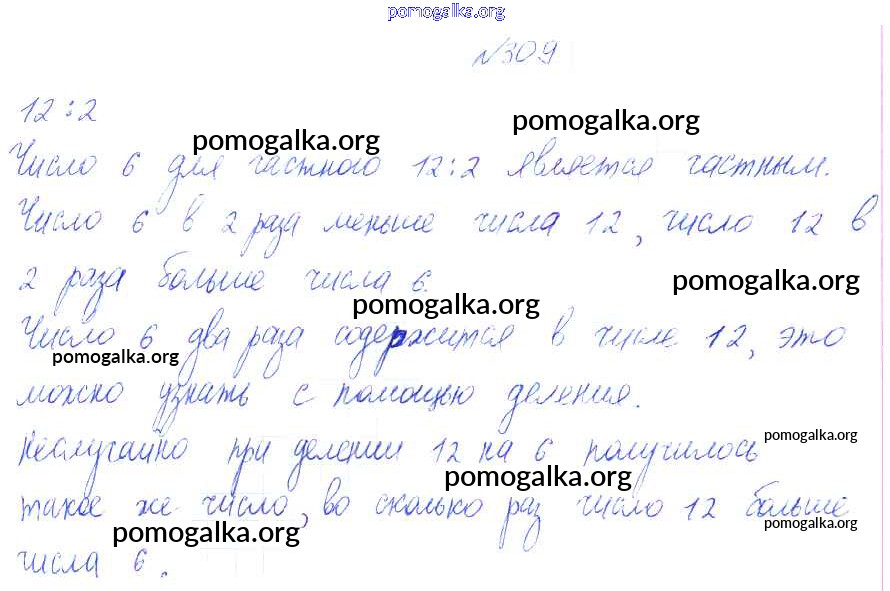 pomogalka.org
№309
12:2
pomogalka.org
pomogalka.org
Число 6 для частного 12:2 является частным.
Число 6 в 2 раза меньше числа 12, число 12 в
2 раза больше числа 6.
pomogalka.org
pomogalka.org
Число 6 два раза содержится в числе 12, это
pomogalka.org
можно узнать с помощью деления.
неслучайно при делении 12 на 6 получилось
pomogalka.org
pomogalka.org
такое же число, во сколько раз число 12 больше
pomogalka.org
pomogalka.org
числа 6.